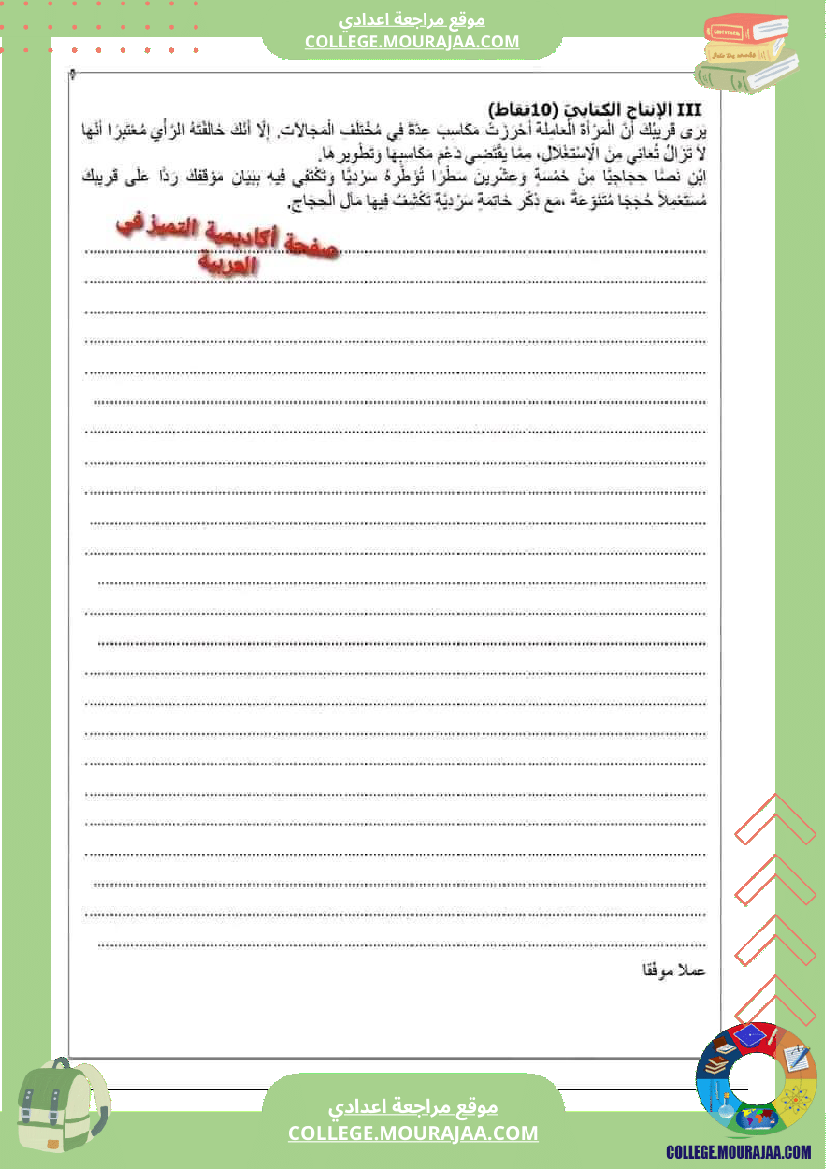 موقع مراجعة اعدادي
COLLEGE.MOURAJAA.COM
III الإنتاج الكتابيّ (10نقاط)
يَرَى قَرِيبُكَ أَنَّ الْمَرْأَةَ الْعَامِلَةَ أَحْرَزَتْ مَكَاسِبَ عِدَّةً فِي مُخْتَلَفِ الْمَجَالَاتِ. إِلَّا أَنَّكَ خَالَفْتَهُ الرَّأْيَ مُعْتَبِرًا أَنَّهَا
لَا تَزَالُ تُعَانِي مِنَ الْاِسْتِغْلَالِ، مِمَّا يَقْتَضِي دَعْمَ مَكَاسِبِهَا وَتَطْوِيرِهَا.
اِبْنِ نَصًّا حِجَاجِيًّا مِنْ خَمْسَةٍ وَعِشْرِينَ سَطْرًا تُؤَطِّرُهُ سَرْدِيًّا وَتَكْتَفِي فِيهِ بِبَيَانِ مَوْقِفِكَ رَدًّا عَلَى قَرِيبِكَ
مُسْتَعْمِلًا حُجَجًا مُتَنَوِّعَةً ،مَع ذِكْر خَاتِمَةٍ سَرْدِيَّةٍ تَكْشِفُ فِيهَا مَآلَ الْحِجَاجِ.
صفحة أكاديمية التميز في
العربية
عملا موفّقا
موقع مراجعة اعدادي
COLLEGE.MOURAJAA.COM
COLLEGE.MOURAJAA.COM